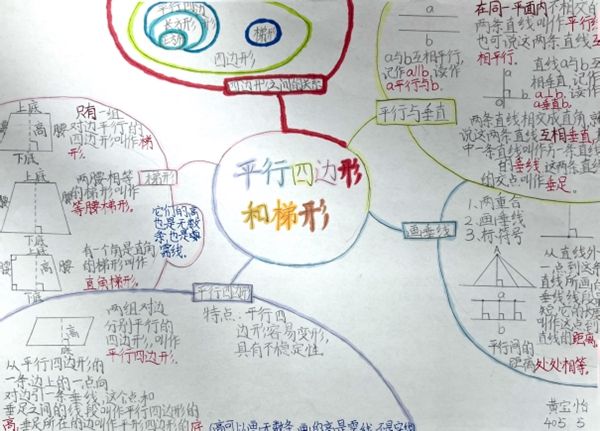 平行四边形
和梯形
平行四边形
长方形
正方形
梯形
四边形
四边形之间的关系
a
b
a与b互相平行,
记作a∥b,读作
a平行与b.
在同一平面内不相交的
两条直线叫作平行线
也可说这两条直线互
相平行.
直线a与b互
相垂直,记作
a⊥b,读作
a垂直b.
a
b
平行与垂直
两条直线相交成直角,就
说这两条直线互相垂直,其
中一条直线叫作另一条直线
的垂线,这两条直线
的交点叫作垂足.
画垂线
1.两重合
2.画垂线
3.标符号
从直线外
一点到这条
直线所画的
垂线线段最
短,它的长度
叫作这点到
直线的距离.
a
b
平行间的
距离处处相等.
只有一组
对边平行的
四边形叫作梯
形.
上底
腰
高
腰
下底
两腰相等
的梯形叫作
等腰梯形.
上底
腰
高
腰
下底
有个角是直角
的梯形叫作
直角梯形.
上底
高
腰
下底
梯形
它们的高
也是无数
条也是
离线.
平行四边形
特点:平行四
边形容易变形,
具有不稳定性.
高
底
两组对边
分别平行的
四边形,叫作
平行四边形.
从平行四边形的
一条边上的一点向
对边引一条垂线,这个点和
垂足之间的线段叫作平行四边形的
高,垂足所在的边叫作平行四边形的底
(高可以画无数条,画的高是虚线,不是实线
黄宝怡
405 5